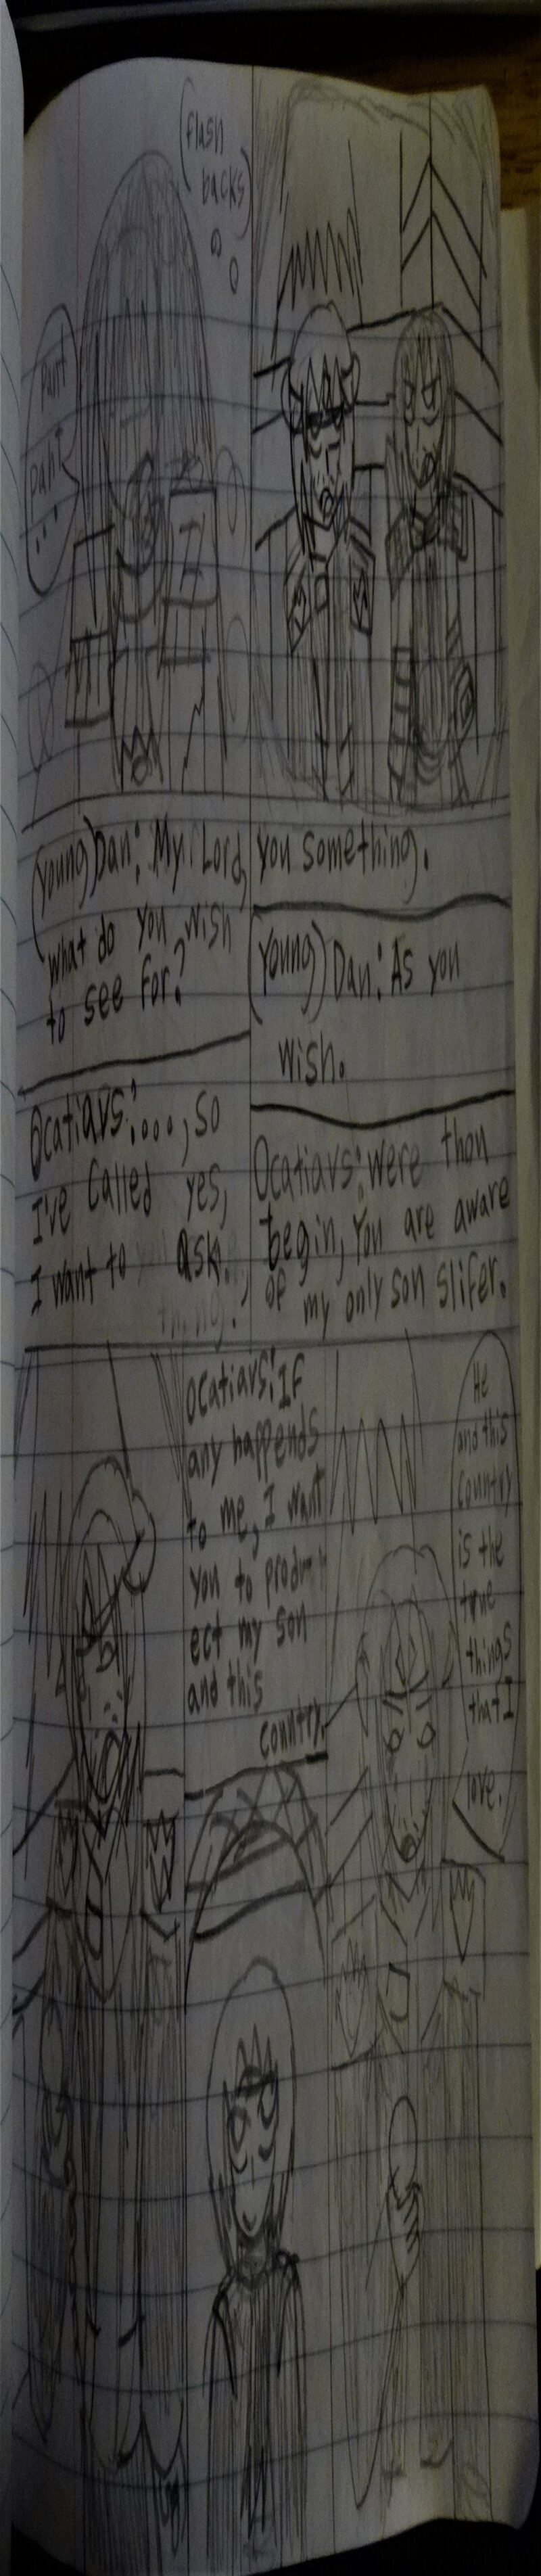 (flash
backs)
pant
pant
...
(young) Dan: My Lord,
what do you wish
to see for?
Ocatiavs:...., so
I've called yes,
I want to ask
you something.
(Young) Dan: As you
wish.
Ocatiavs: Were thou
begin, You are aware
of my only son slifer.
Ocatiavs: If
any happends
to me, I want
you to prodt
ect my son
and this
country.
He
and this
country
is the
true
things
that I
love.